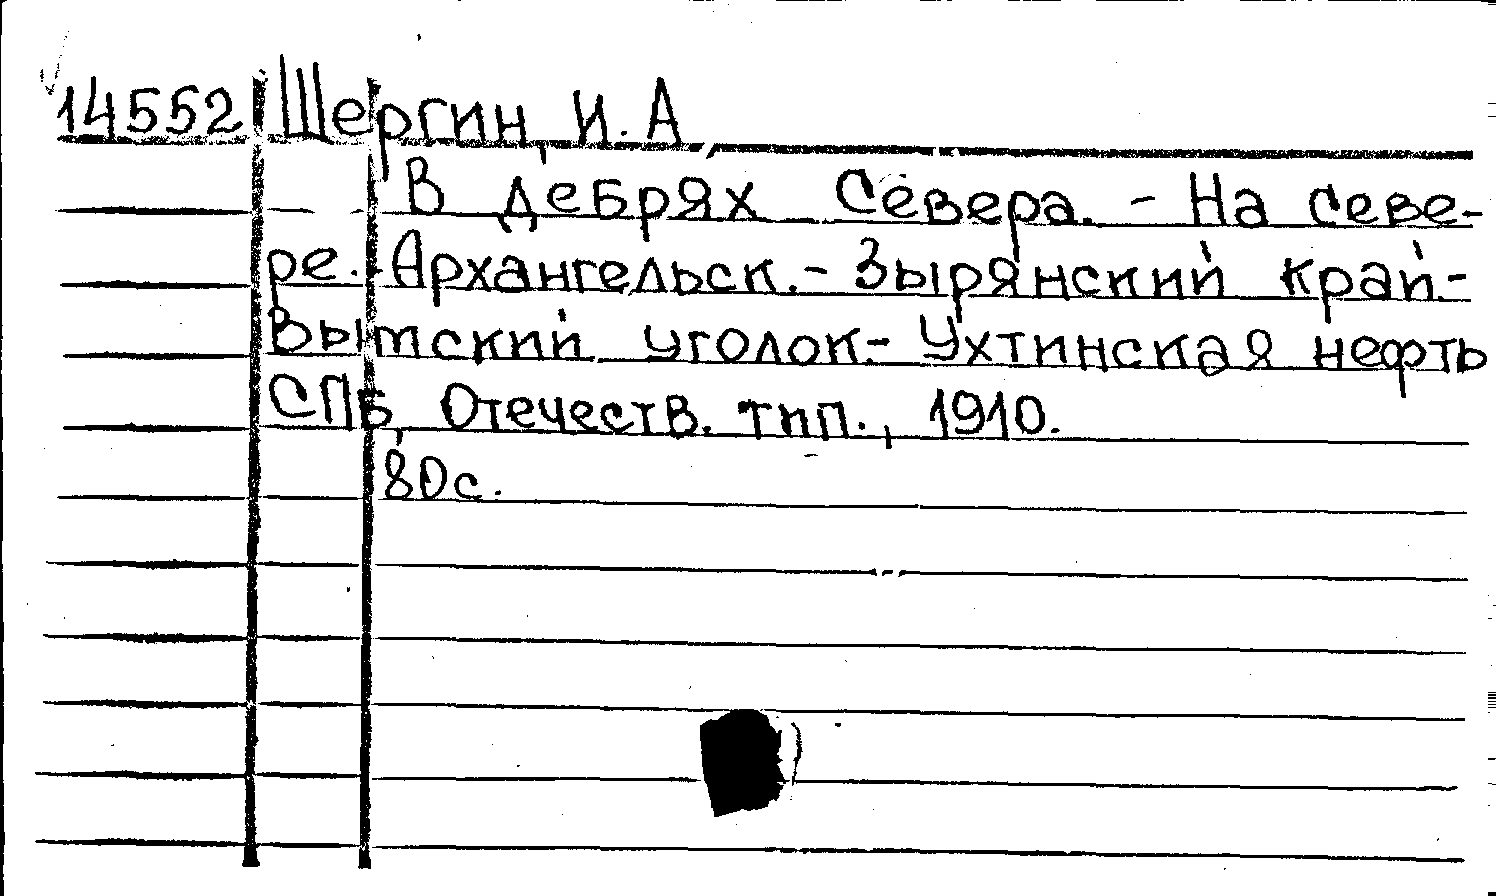 14552 Шергин, И. А
В дебрях Севера. - На севе-
ре. - Архангельск. - Зырянский край. -
Вытский уголок. - Ухтинская нефть
СПб, Отечеств. тип., 1910.
80с.